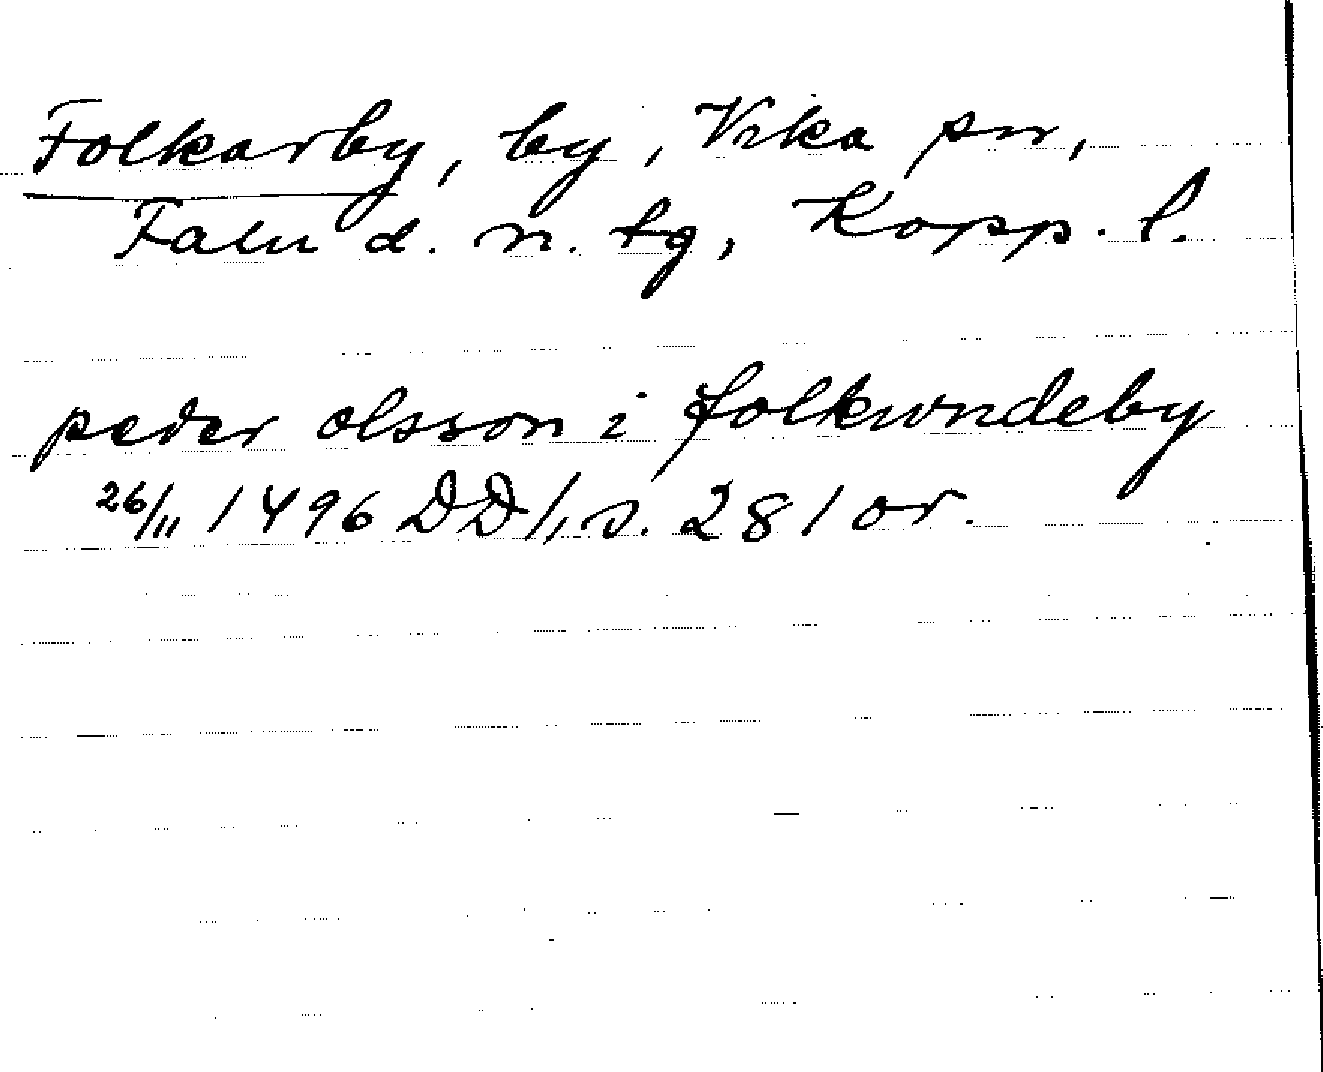 Folkarby, by, Vika sn,
Falu d. n. tg, Kopp. l.
peder olsson i folkwndeby
26/11 1496 DD 1/1 s. 281 or.